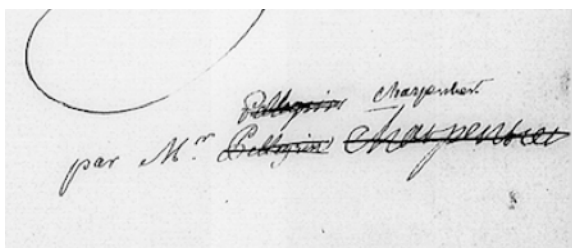 Pellegrin Charpentier
par M.r Pellegrin Charpentier